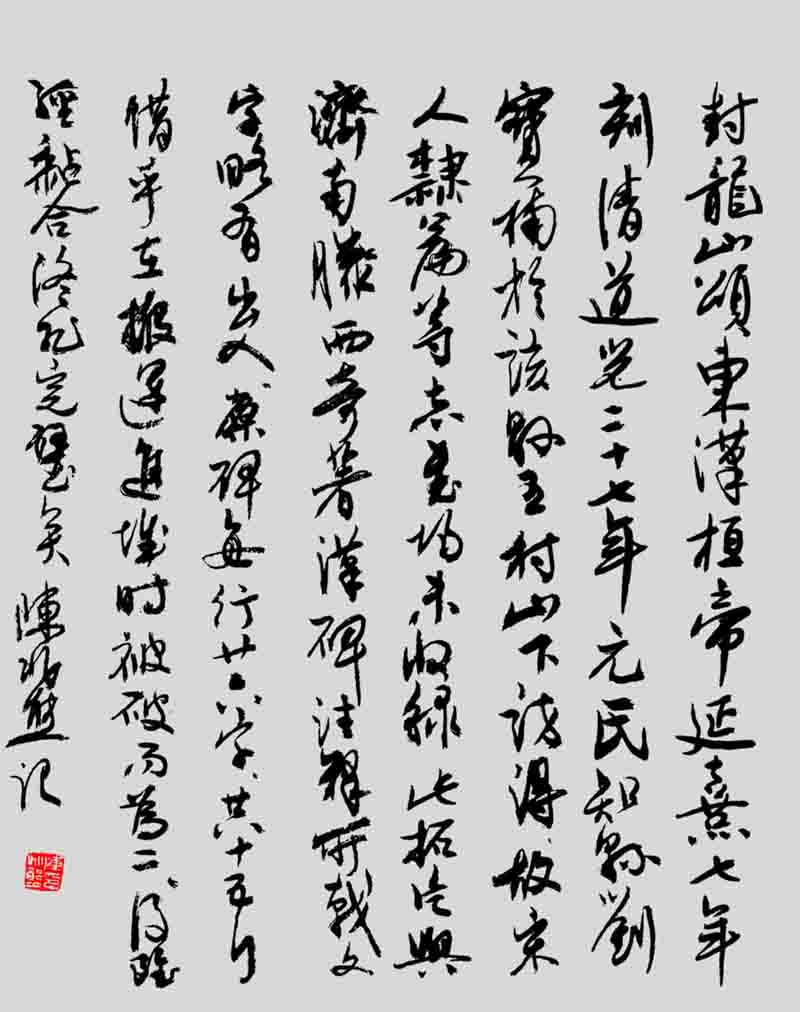 封龍山頌東漢桓帝延熹七年
刻清道光二十七年元氏知縣劉
寶楠於該縣王村山下訪得故宋
人隸篇等志書均未收錄此拓片與
濟南滕西奇著漢碑注釋所載文
字略有出入原碑每行廿六字共十五行
惜乎在搬運進城時被破而為二後雖
經黏合終非完璧矣
記